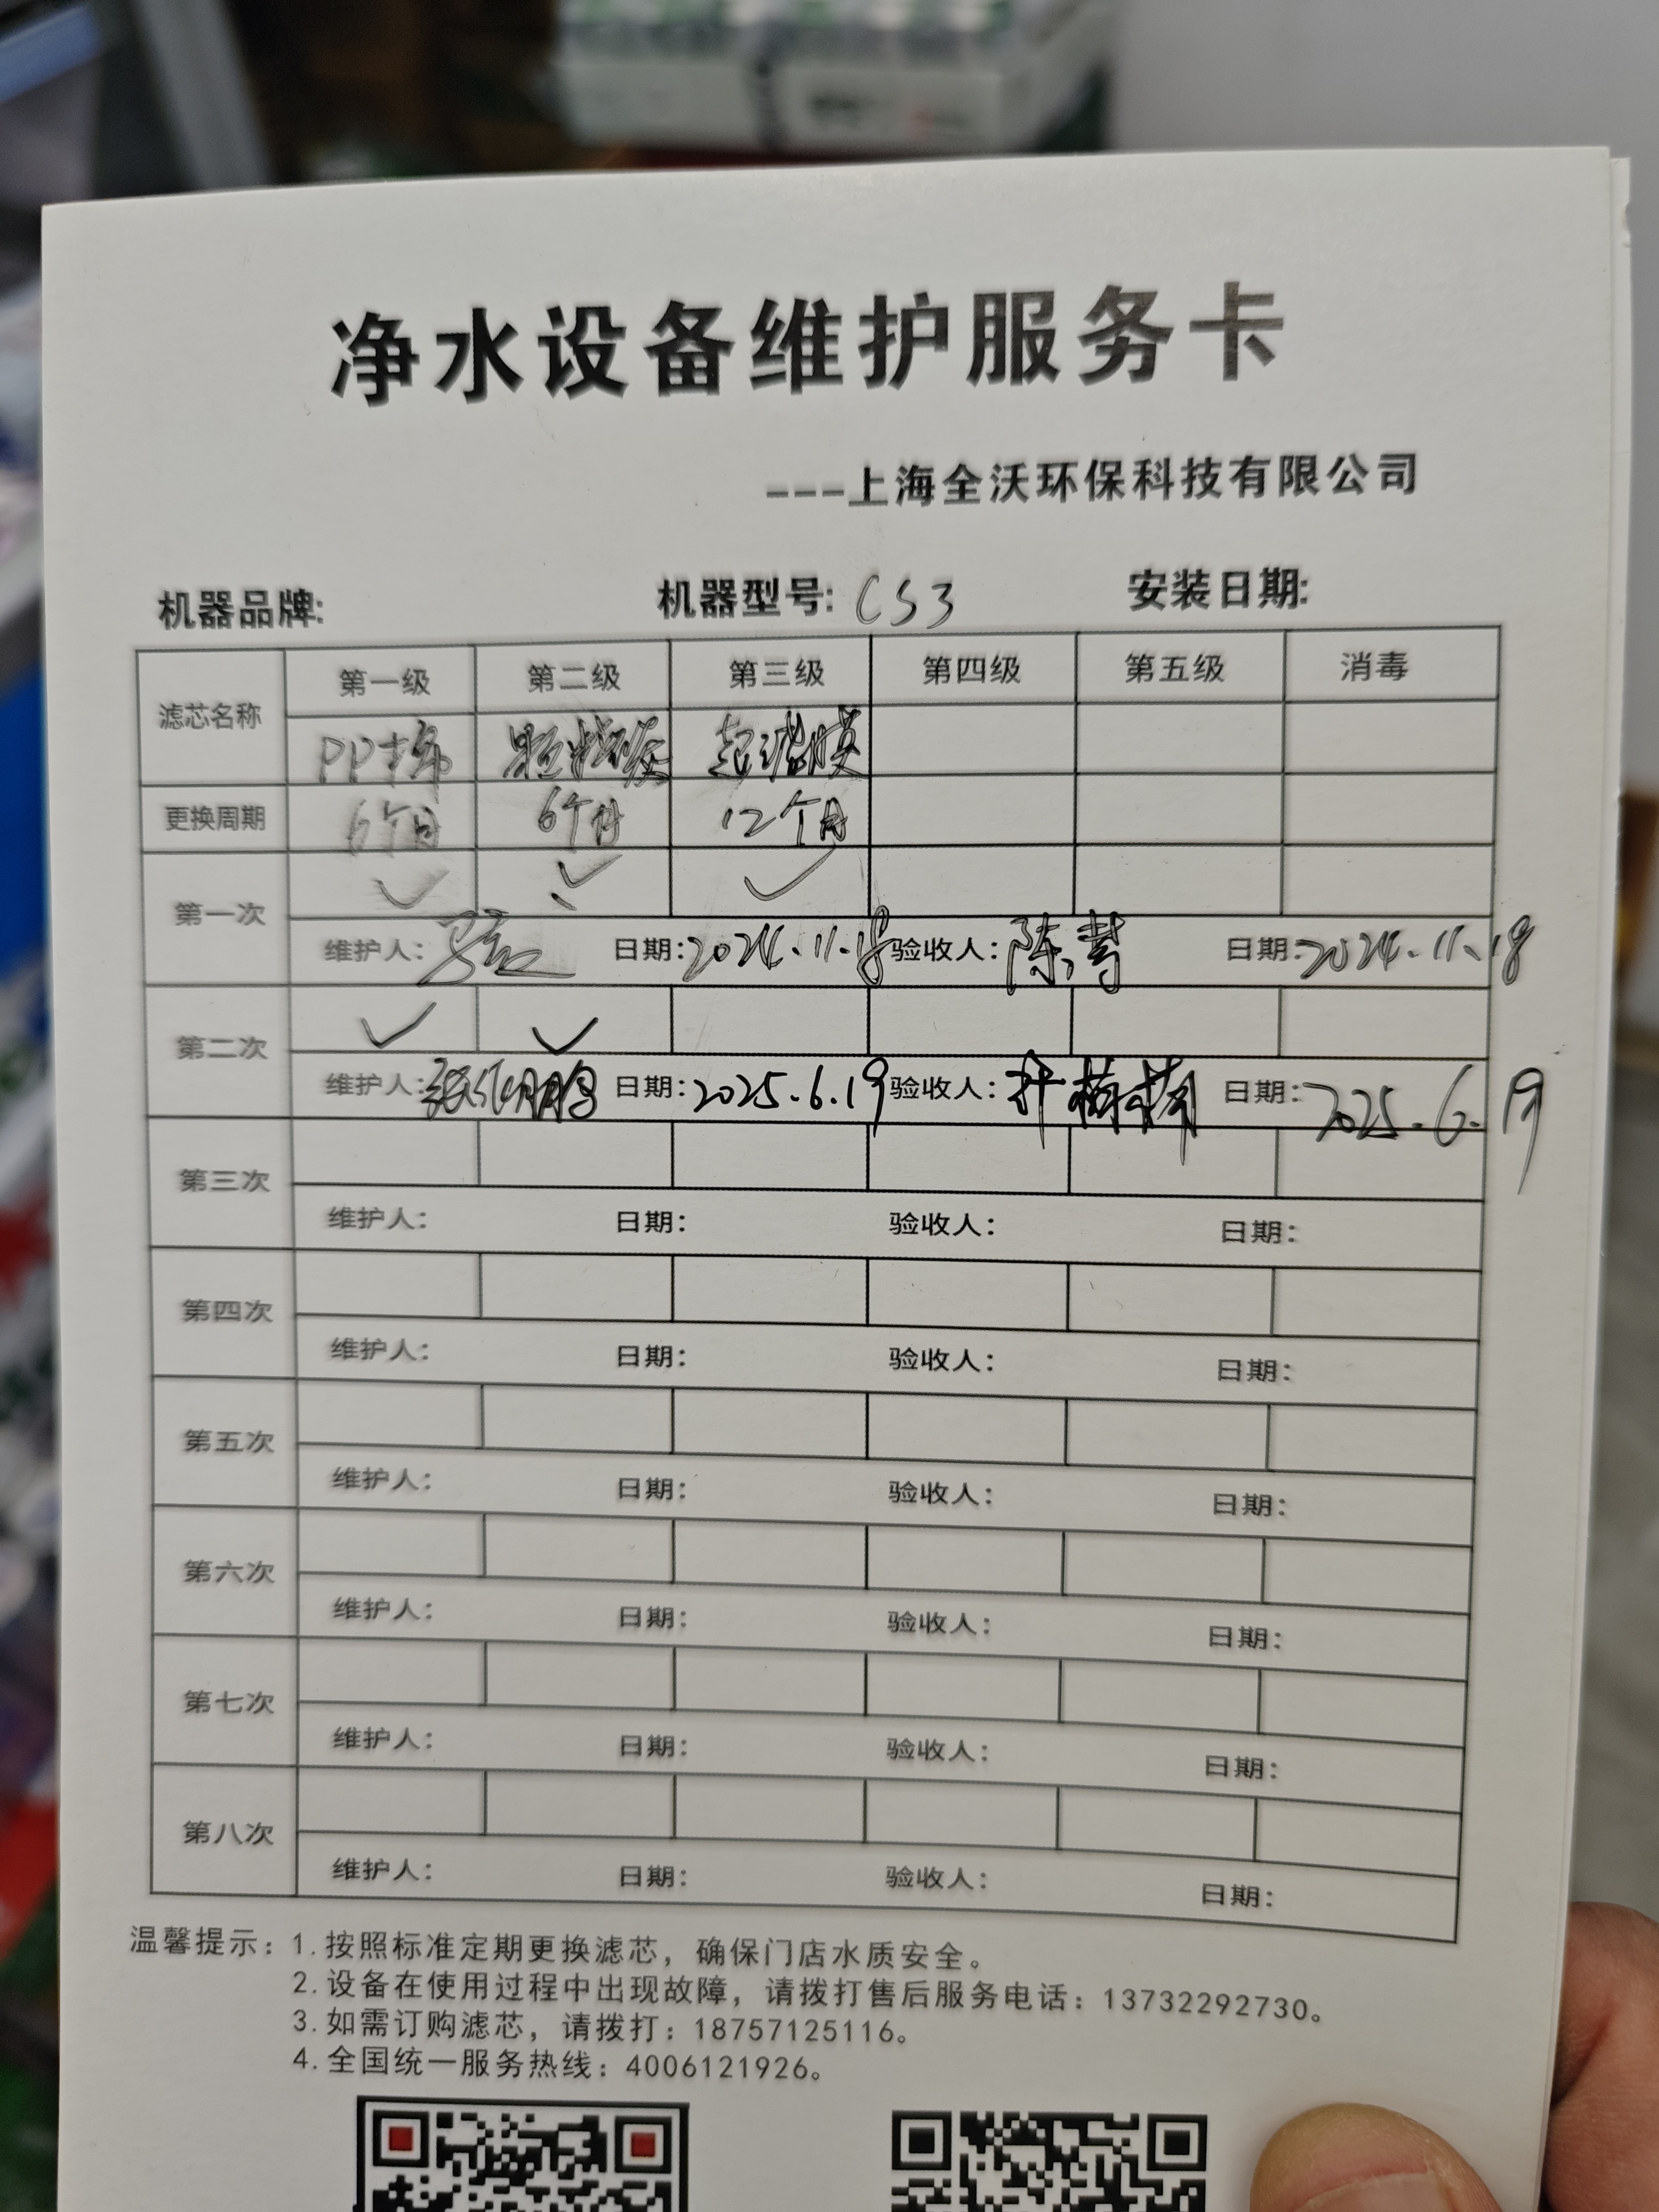 净水设备维护服务卡
---上海全沃环保科技有限公司
机器品牌: 机器型号: CS3 安装日期:
滤芯名称 第一级 第二级 第三级 第四级 第五级 消毒
PP棉 颗粒炭 起滤膜
更换周期 6个月 6个月 12个月
第一次 ✓ ✓ ✓
维护人: 日期: 2024.11.18 验收人: 陈 日期: 2024.11.18
第二次 ✓ ✓
维护人: 张 鹏 日期: 2025.6.19 验收人: 日期: 2025.6.19
第三次
维护人: 日期: 验收人: 日期:
第四次
维护人: 日期: 验收人: 日期:
第五次
维护人: 日期: 验收人: 日期:
第六次
维护人: 日期: 验收人: 日期:
第七次
维护人: 日期: 验收人: 日期:
第八次
维护人: 日期: 验收人: 日期:
温馨提示: 1.按照标准定期更换滤芯，确保门店水质安全。
2.设备在使用过程中出现故障，请拨打售后服务电话：13732292730。
3.如需订购滤芯，请拨打：18757125116。
4.全国统一服务热线：4006121926。